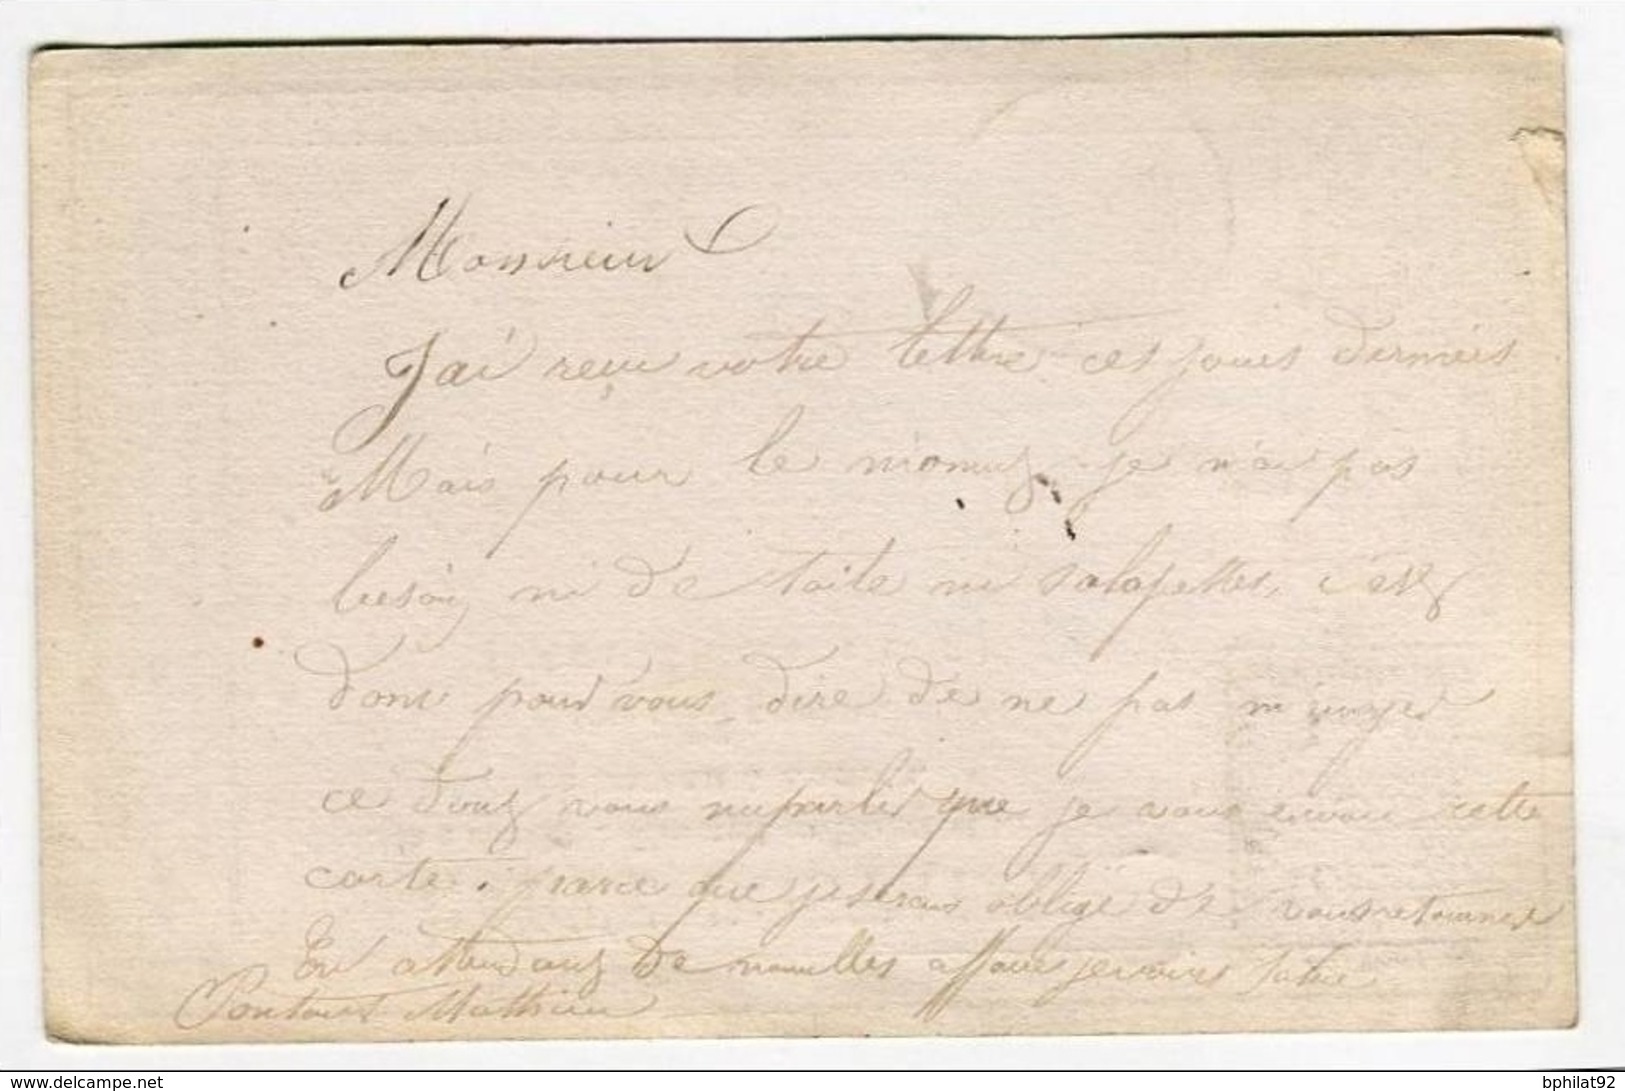 Monsieur
J'ai reçu votre lettre ces jours derniers
Mais pour le moment je n'ai pas
besoin ni de toile ni salopettes, c'est
donc pour vous dire de ne pas m'envoyer
ce dont vous que je vous envoie cette
carte. parce que je serais obligé de vous retourner
En attendant de nouvelles affaires je vous salue
Mathieu
www.delcampe.net
bphilat92